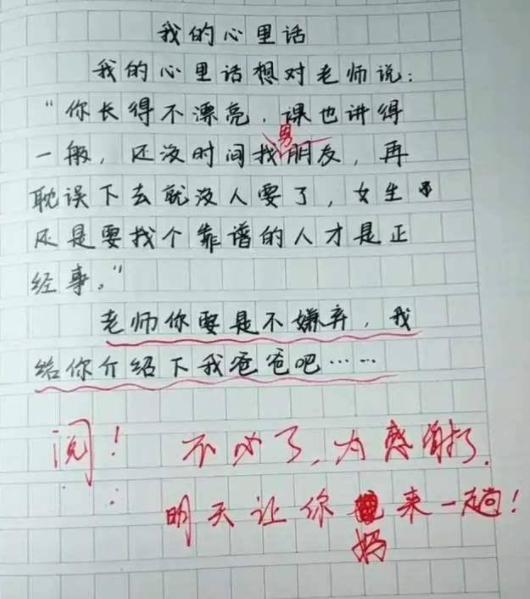 我的心里话
我的心里话想对老师说：
“你长得不漂亮，课也讲得
一般，还没时间找男朋友，再
耽误下去就没人要了，女生
还是要找个靠谱的人才是正
经事。”
老师你要是不嫌弃，我
给你介绍下我爸爸吧……
阅！ 不必了，太感谢了，
明天让你妈来一趟！